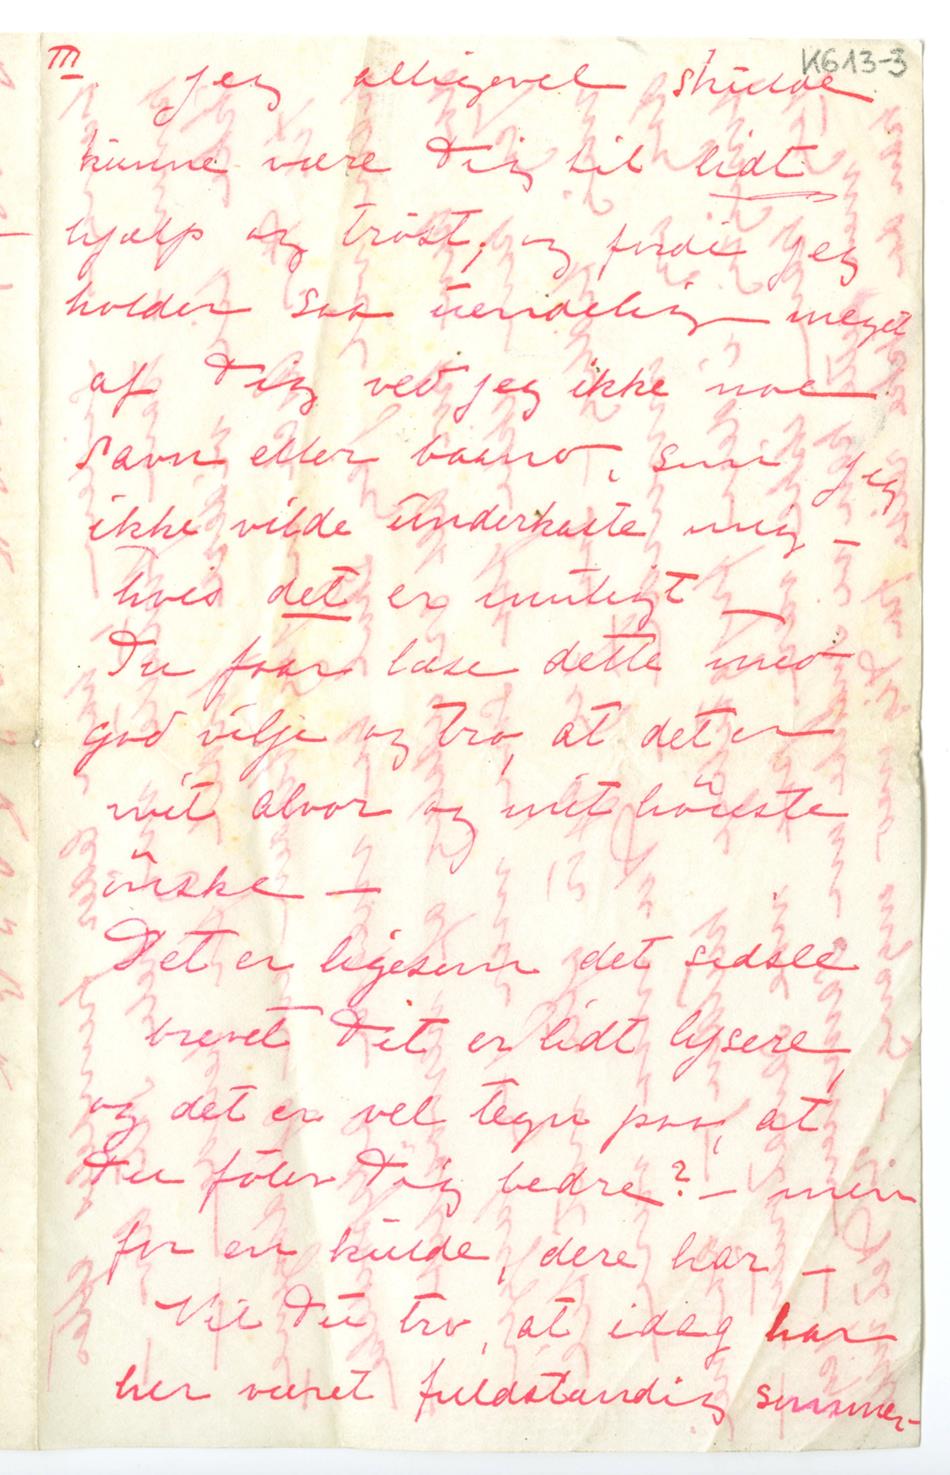 III K613-3
jeg alligevel skulde
kunne være Dig til lidt
hjælp og trøst, og fordi jeg
holder saa uendelig meget
af Dig ved jeg ikke noe
savn eller baand, som jeg
ikke vilde underkaste mig –
hvis det er muligt –
Du faar læse dette med
god vilje og tro, at det er
mit alvor og mit høieste
ønske –
Det er ligesom det sidste
brevet Dit er lidt lysere,
og det er vel tegn paa, at
Du føler Dig bedre? – men
for en kulde, dere har –
Vil Du tro, at idag har
her været fuldstændig sommer-